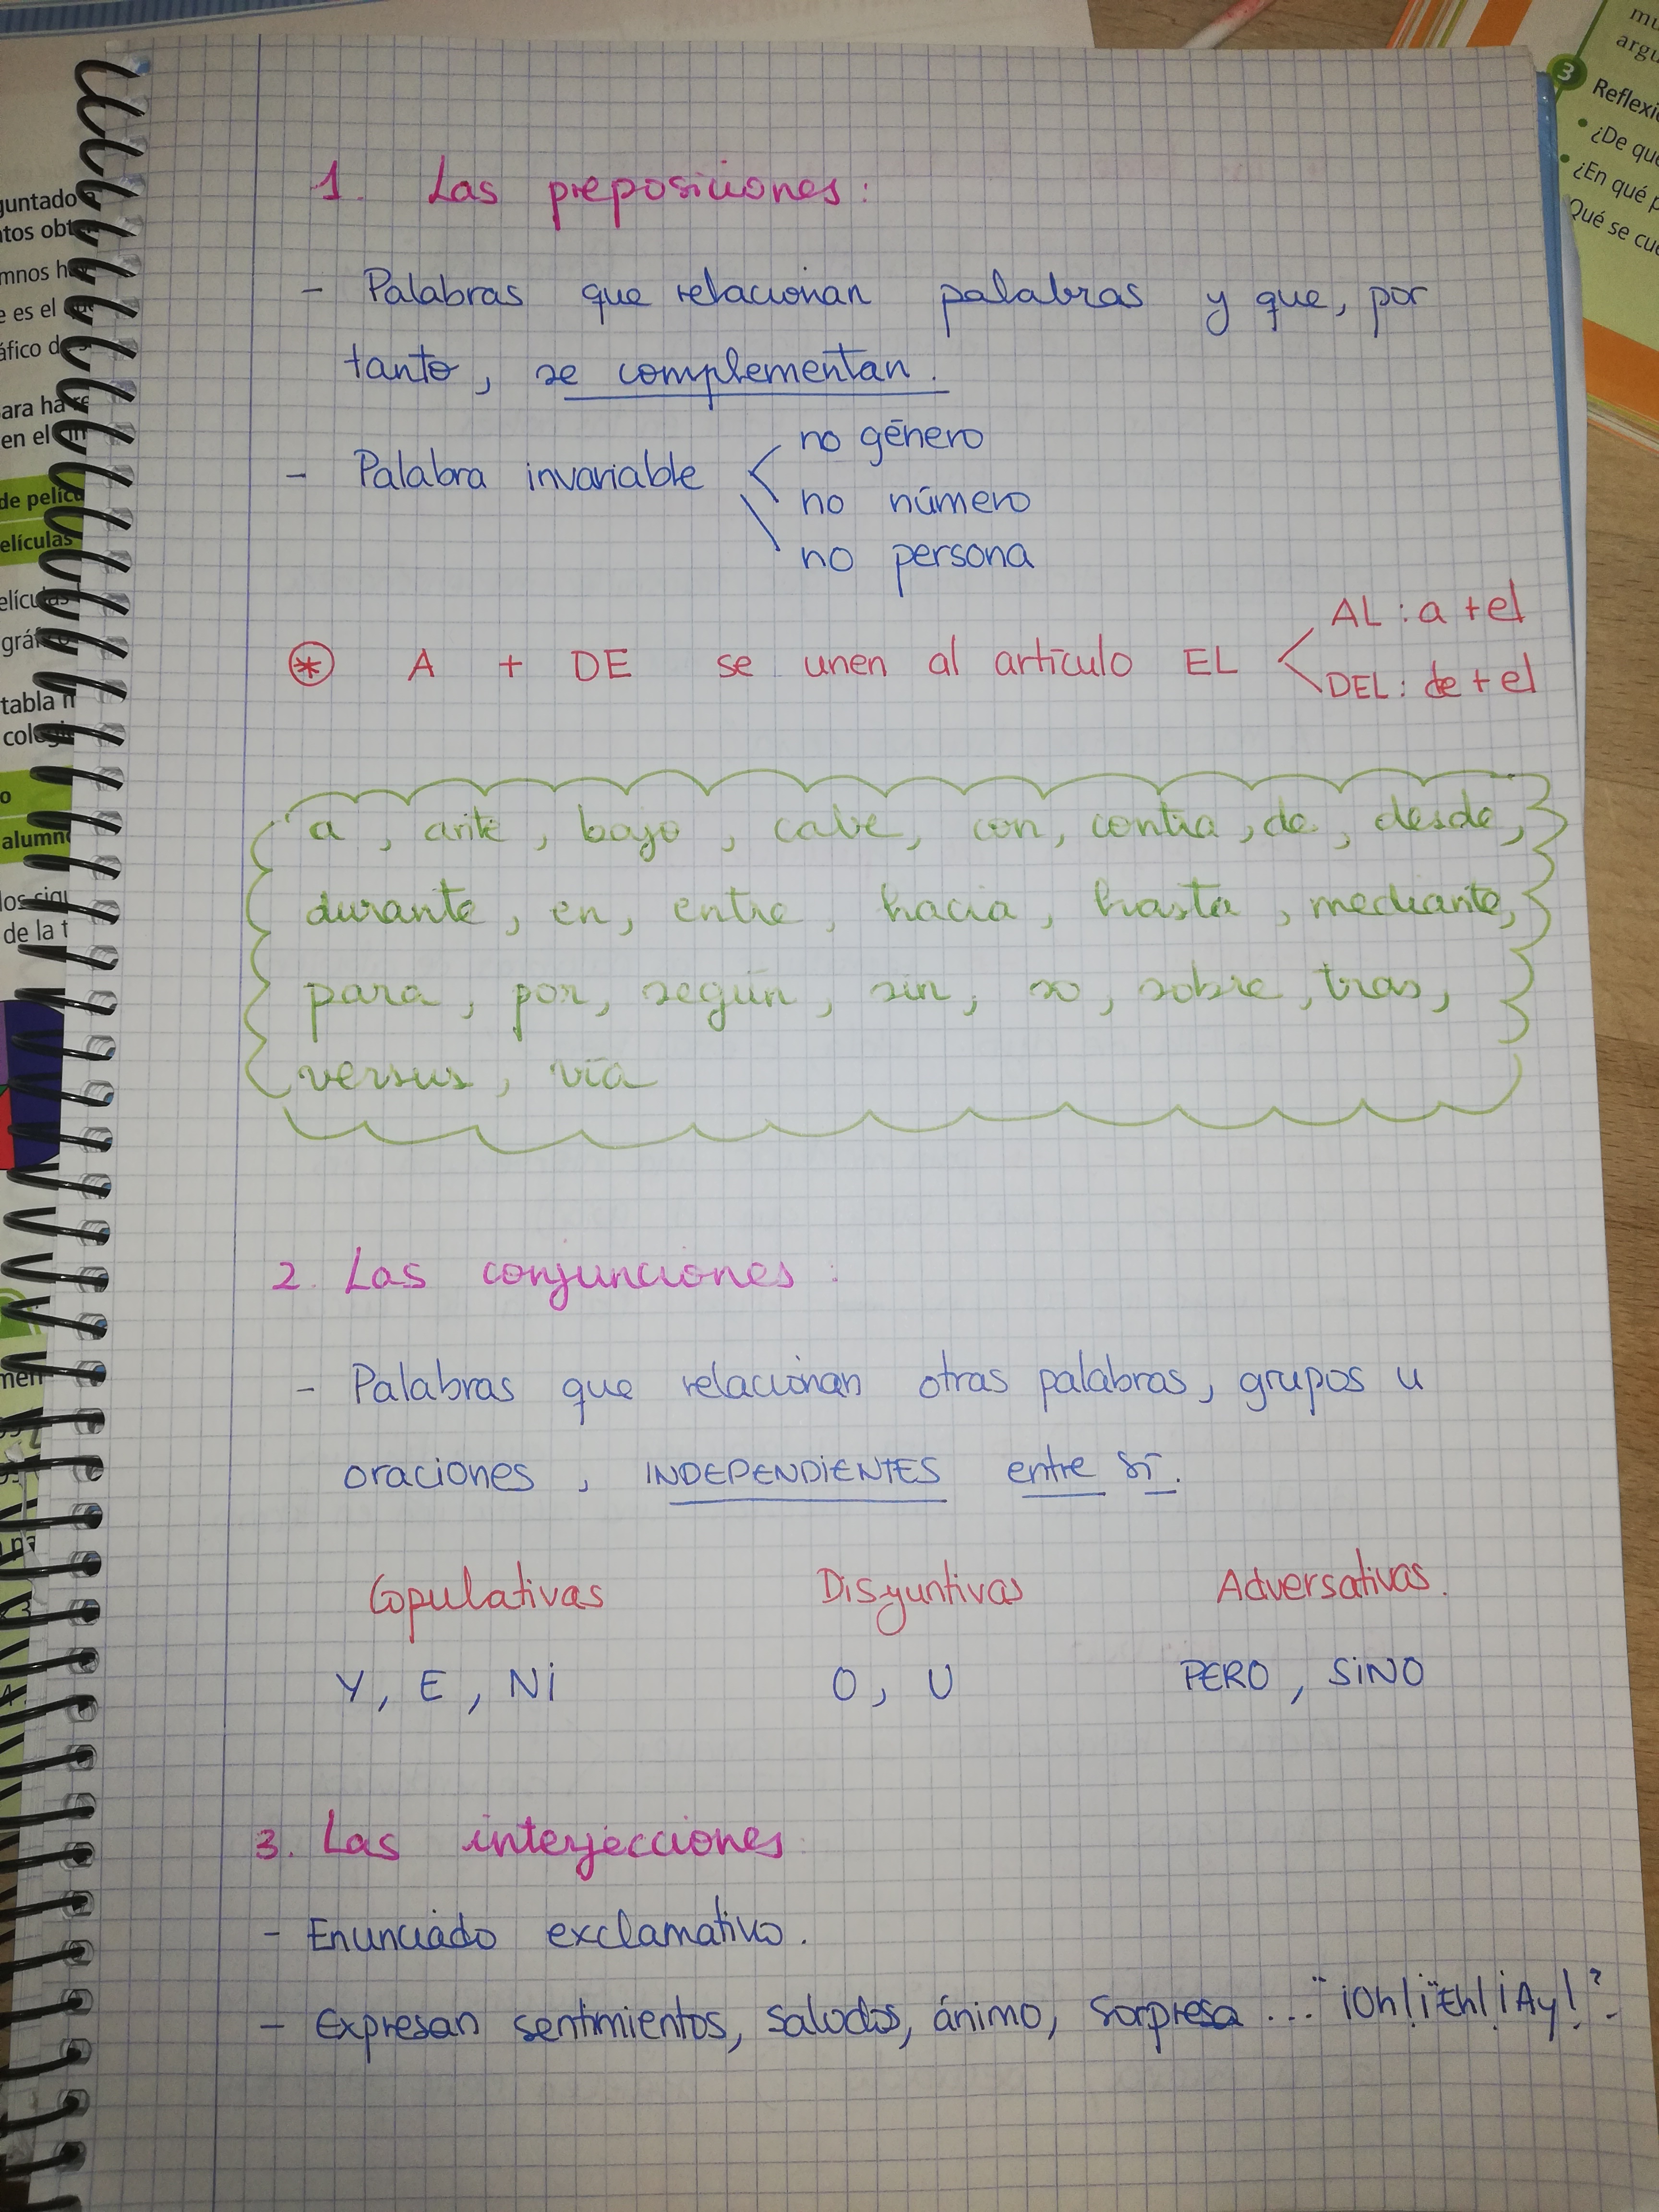 1. Las preposiciones:
- Palabras que relacionan palabras y que, por
tanto, se complementan.
- Palabra invariable
no género
no número
no persona
* A + DE se unen al artículo EL
AL : a + el
DEL : de + el
a, ante, bajo, cabe, con, contra, de, desde,
durante, en, entre, hacia, hasta, mediante,
para, por, según, sin, so, sobre, tras,
versus, vía
2. Las conjunciones:
- Palabras que relacionan otras palabras, grupos u
oraciones, INDEPENDIENTES entre sí.
Copulativas Disyuntivas Adversativas.
Y, E, Ni O, U PERO, SiNO
3. Las interjecciones:
- Enunciado exclamativo.
- Expresan sentimientos, saludos, ánimo, sorpresa ... "¡Oh! ¡Eh! ¡Ay!".
guntado
mnos
e es el
áfico
en el
de pelícu
elículas
tabla
alumno
de la t
3
Reflexi
• ¿De qu
• ¿En qué p
Qué se cue